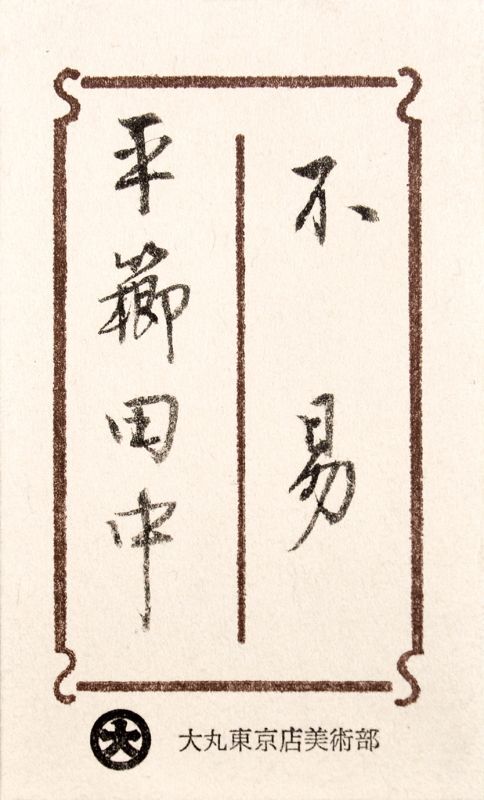 不易
平櫛田中
大
大丸東京店美術部